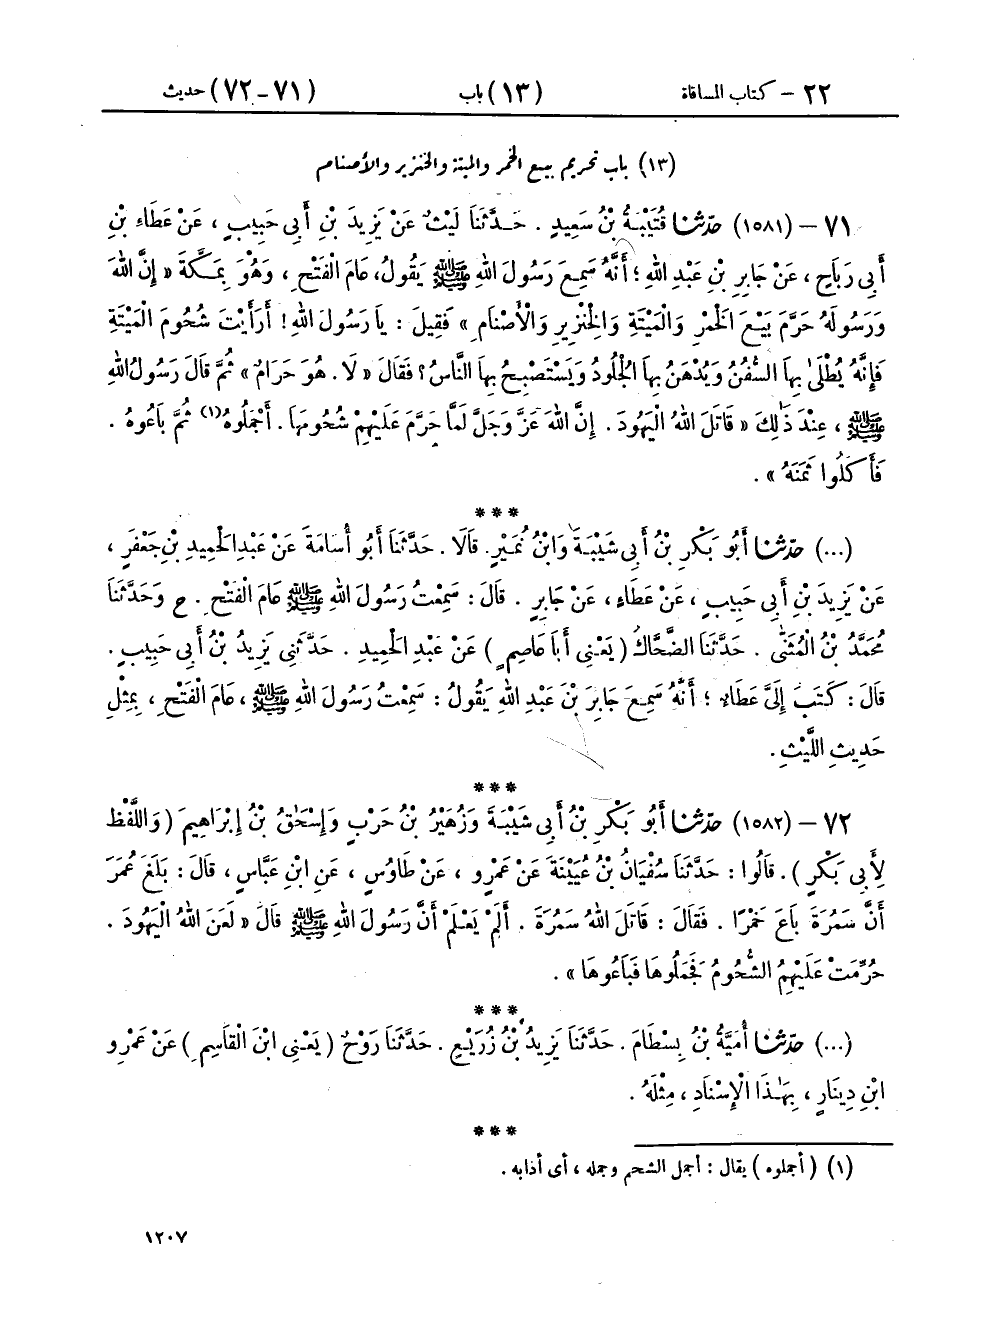 ٢٢ – كتاب المساقاة (١٣) باب (٧١–٧٢) حديث
(١٣) باب تحريم بيع الخمر والميتة والخنزير والأصنام
٧١ – (١٥٨١) حَدَّثَنَا قُتَيْبَةُ بْنُ سَعِيدٍ . حَدَّثَنَا لَيْثٌ عَنْ يَزِيدَ بْنِ أَبِي حَبِيبٍ ، عَنْ عَطَاءِ بْنِ
أَبِي رَبَاحٍ ، عَنْ جَابِرِ بْنِ عَبْدِ اللهِ ؛ أَنَّهُ سَمِعَ رَسُولَ اللهِ ﷺ يَقُولُ، عَامَ الْفَتْحِ ، وَهُوَ بِمَكَّةَ « إِنَّ اللهَ
وَرَسُولَهُ حَرَّمَ بَيْعَ الْخَمْرِ وَالْمَيْتَةِ وَالْخِنْزِيرِ وَالْأَصْنَامِ » فَقِيلَ : يَا رَسُولَ اللهِ ! أَرَأَيْتَ شُحُومَ الْمَيْتَةِ
فَإِنَّهُ يُطْلَىٰ بِهَا السُّفُنُ وَيُدْهَنُ بِهَا الْجُلُودُ وَيَسْتَصْبِحُ بِهَا النَّاسُ ؟ فَقَالَ « لَا . هُوَ حَرَامٌ » ثُمَّ قَالَ رَسُولُ اللهِ
ﷺ ، عِنْدَ ذَٰلِكَ « قَاتَلَ اللهُ الْيَهُودَ . إِنَّ اللهَ عَزَّ وَجَلَّ لَمَّا حَرَّمَ عَلَيْهِمْ شُحُومَهَا . أَجْمَلُوهُ (١) ثُمَّ بَاعُوهُ .
فَأَكَلُوا ثَمَنَهُ » .
***
(...) حَدَّثَنَا أَبُو بَكْرِ بْنُ أَبِي شَيْبَةَ وَابْنُ نُمَيْرٍ. قَالَا . حَدَّثَنَا أَبُو أُسَامَةَ عَنْ عَبْدِ الْحَمِيدِ بْنِ جَعْفَرٍ ،
عَنْ يَزِيدَ بْنِ أَبِي حَبِيبٍ ، عَنْ عَطَاءٍ ، عَنْ جَابِرٍ . قَالَ : سَمِعْتُ رَسُولَ اللهِ ﷺ عَامَ الْفَتْحِ . ح وَحَدَّثَنَا
مُحَمَّدُ بْنُ الْمُثَنَّىٰ . حَدَّثَنَا الضَّحَّاكُ ( يَعْنِي أَبَا عَاصِمٍ ) عَنْ عَبْدِ الْحَمِيدِ . حَدَّثَنِي يَزِيدُ بْنُ أَبِي حَبِيبٍ .
قَالَ : كَتَبَ إِلَيَّ عَطَاءٌ ؛ أَنَّهُ سَمِعَ جَابِرَ بْنَ عَبْدِ اللهِ يَقُولُ : سَمِعْتُ رَسُولَ اللهِ ﷺ ، عَامَ الْفَتْحِ ، بِمِثْلِ
حَدِيثِ اللَّيْثِ .
***
٧٢ – (١٥٨٢) حَدَّثَنَا أَبُو بَكْرِ بْنُ أَبِي شَيْبَةَ وَزُهَيْرُ بْنُ حَرْبٍ وَإِسْحَٰقُ بْنُ إِبْرَاهِيمَ ( وَاللَّفْظُ
لِأَبِي بَكْرٍ ) . قَالُوا : حَدَّثَنَا سُفْيَانُ بْنُ عُيَيْنَةَ عَنْ عَمْرٍو ، عَنْ طَاوُسٍ ، عَنِ ابْنِ عَبَّاسٍ ، قَالَ : بَلَغَ عُمَرَ
أَنَّ سَمُرَةَ بَاعَ خَمْرًا . فَقَالَ : قَاتَلَ اللهُ سَمُرَةَ . أَلَمْ يَعْلَمْ أَنَّ رَسُولَ اللهِ ﷺ قَالَ « لَعَنَ اللهُ الْيَهُودَ .
حُرِّمَتْ عَلَيْهِمُ الشُّحُومُ فَجَمَلُوهَا فَبَاعُوهَا » .
***
(...) حَدَّثَنَا أُمَيَّةُ بْنُ بِسْطَامَ . حَدَّثَنَا يَزِيدُ بْنُ زُرَيْعٍ . حَدَّثَنَا رَوْحٌ ( يَعْنِي ابْنَ الْقَاسِمِ ) عَنْ عَمْرِو
ابْنِ دِينَارٍ ، بِهَٰذَا الْإِسْنَادِ ، مِثْلَهُ .
***
(١) ( أجملوه ) يقال : أجمل الشحم وجمله ، أى أذابه .
١٢٠٧